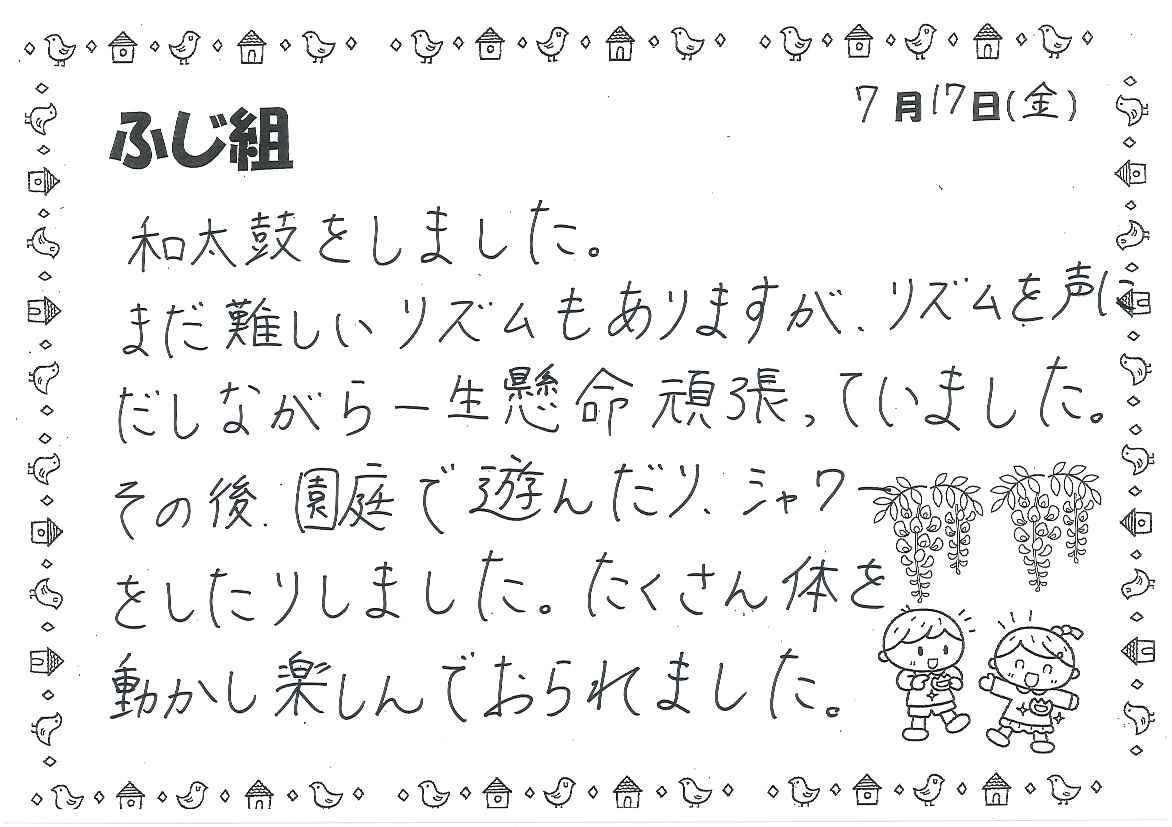 7月17日(金)
ふじ組
和太鼓をしました。
まだ難しいリズムもありますが、リズムを声に
だしながら一生懸命頑張っていました。
その後、園庭で遊んだり、シャワー
をしたりしました。たくさん体を
動かし楽しんでおられました。